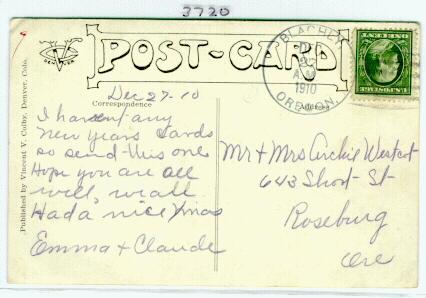 3720
POST-CARD
BLACHLY
DEC
27
A.M.
1910
OREGON.
Dec 27-10
Correspondence
Address
I havent any
New Years Cards
so send this one
Hope you are all
well, we all
Had a nice Xmas
Emma & Claude
Mr & Mrs Archie Westcot
643 Short St
Roseburg
Ore
Published by Vincent V. Colby, Denver, Colo.
DENVER